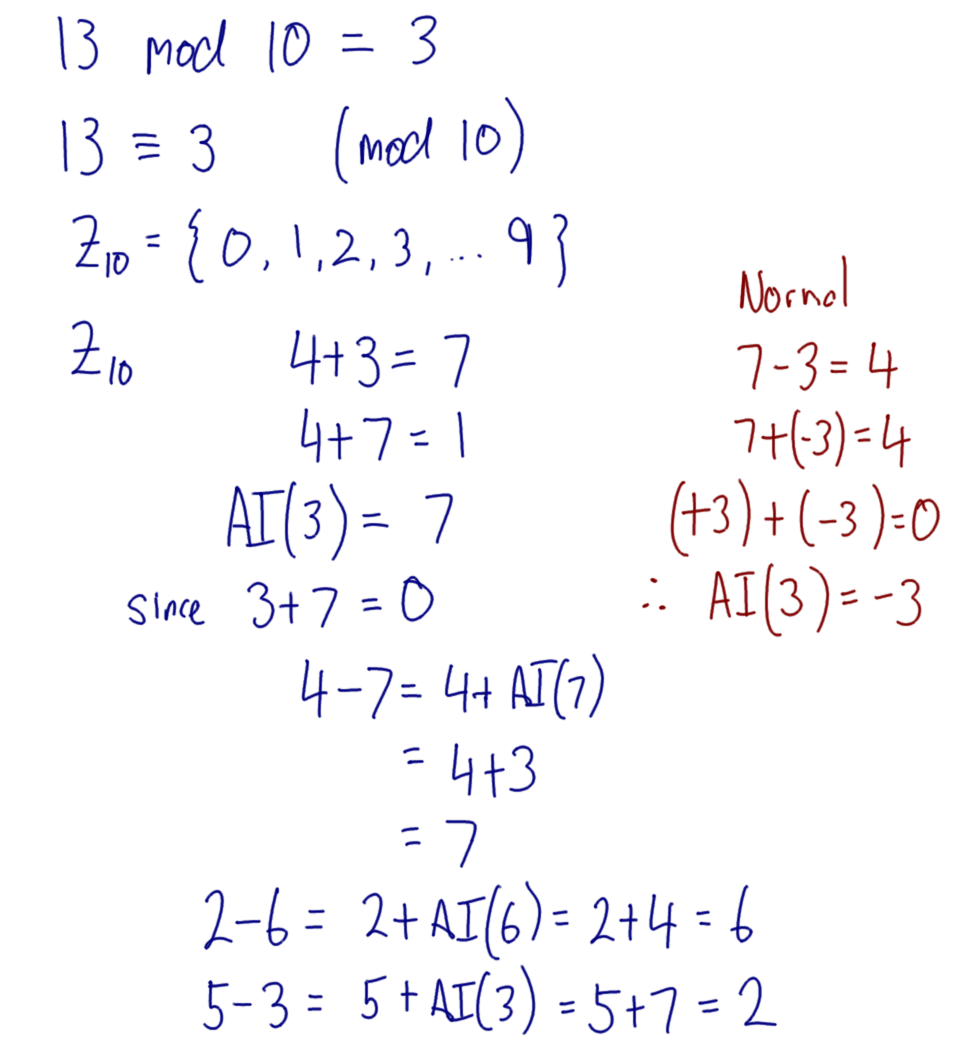 13 mod 10 = 3
13 ≡ 3 (mod 10)
Z₁₀ = {0, 1, 2, 3, ... 9}
Z₁₀ 4+3 = 7
4+7 = 1
AI(3) = 7
since 3+7 = 0
4-7 = 4+ AI(7)
= 4+3
= 7
2-6 = 2+AI(6) = 2+4 = 6
5-3 = 5+AI(3) = 5+7 = 2
Normal
7-3 = 4
7+(-3) = 4
(+3)+(-3) = 0
∴ AI(3) = -3